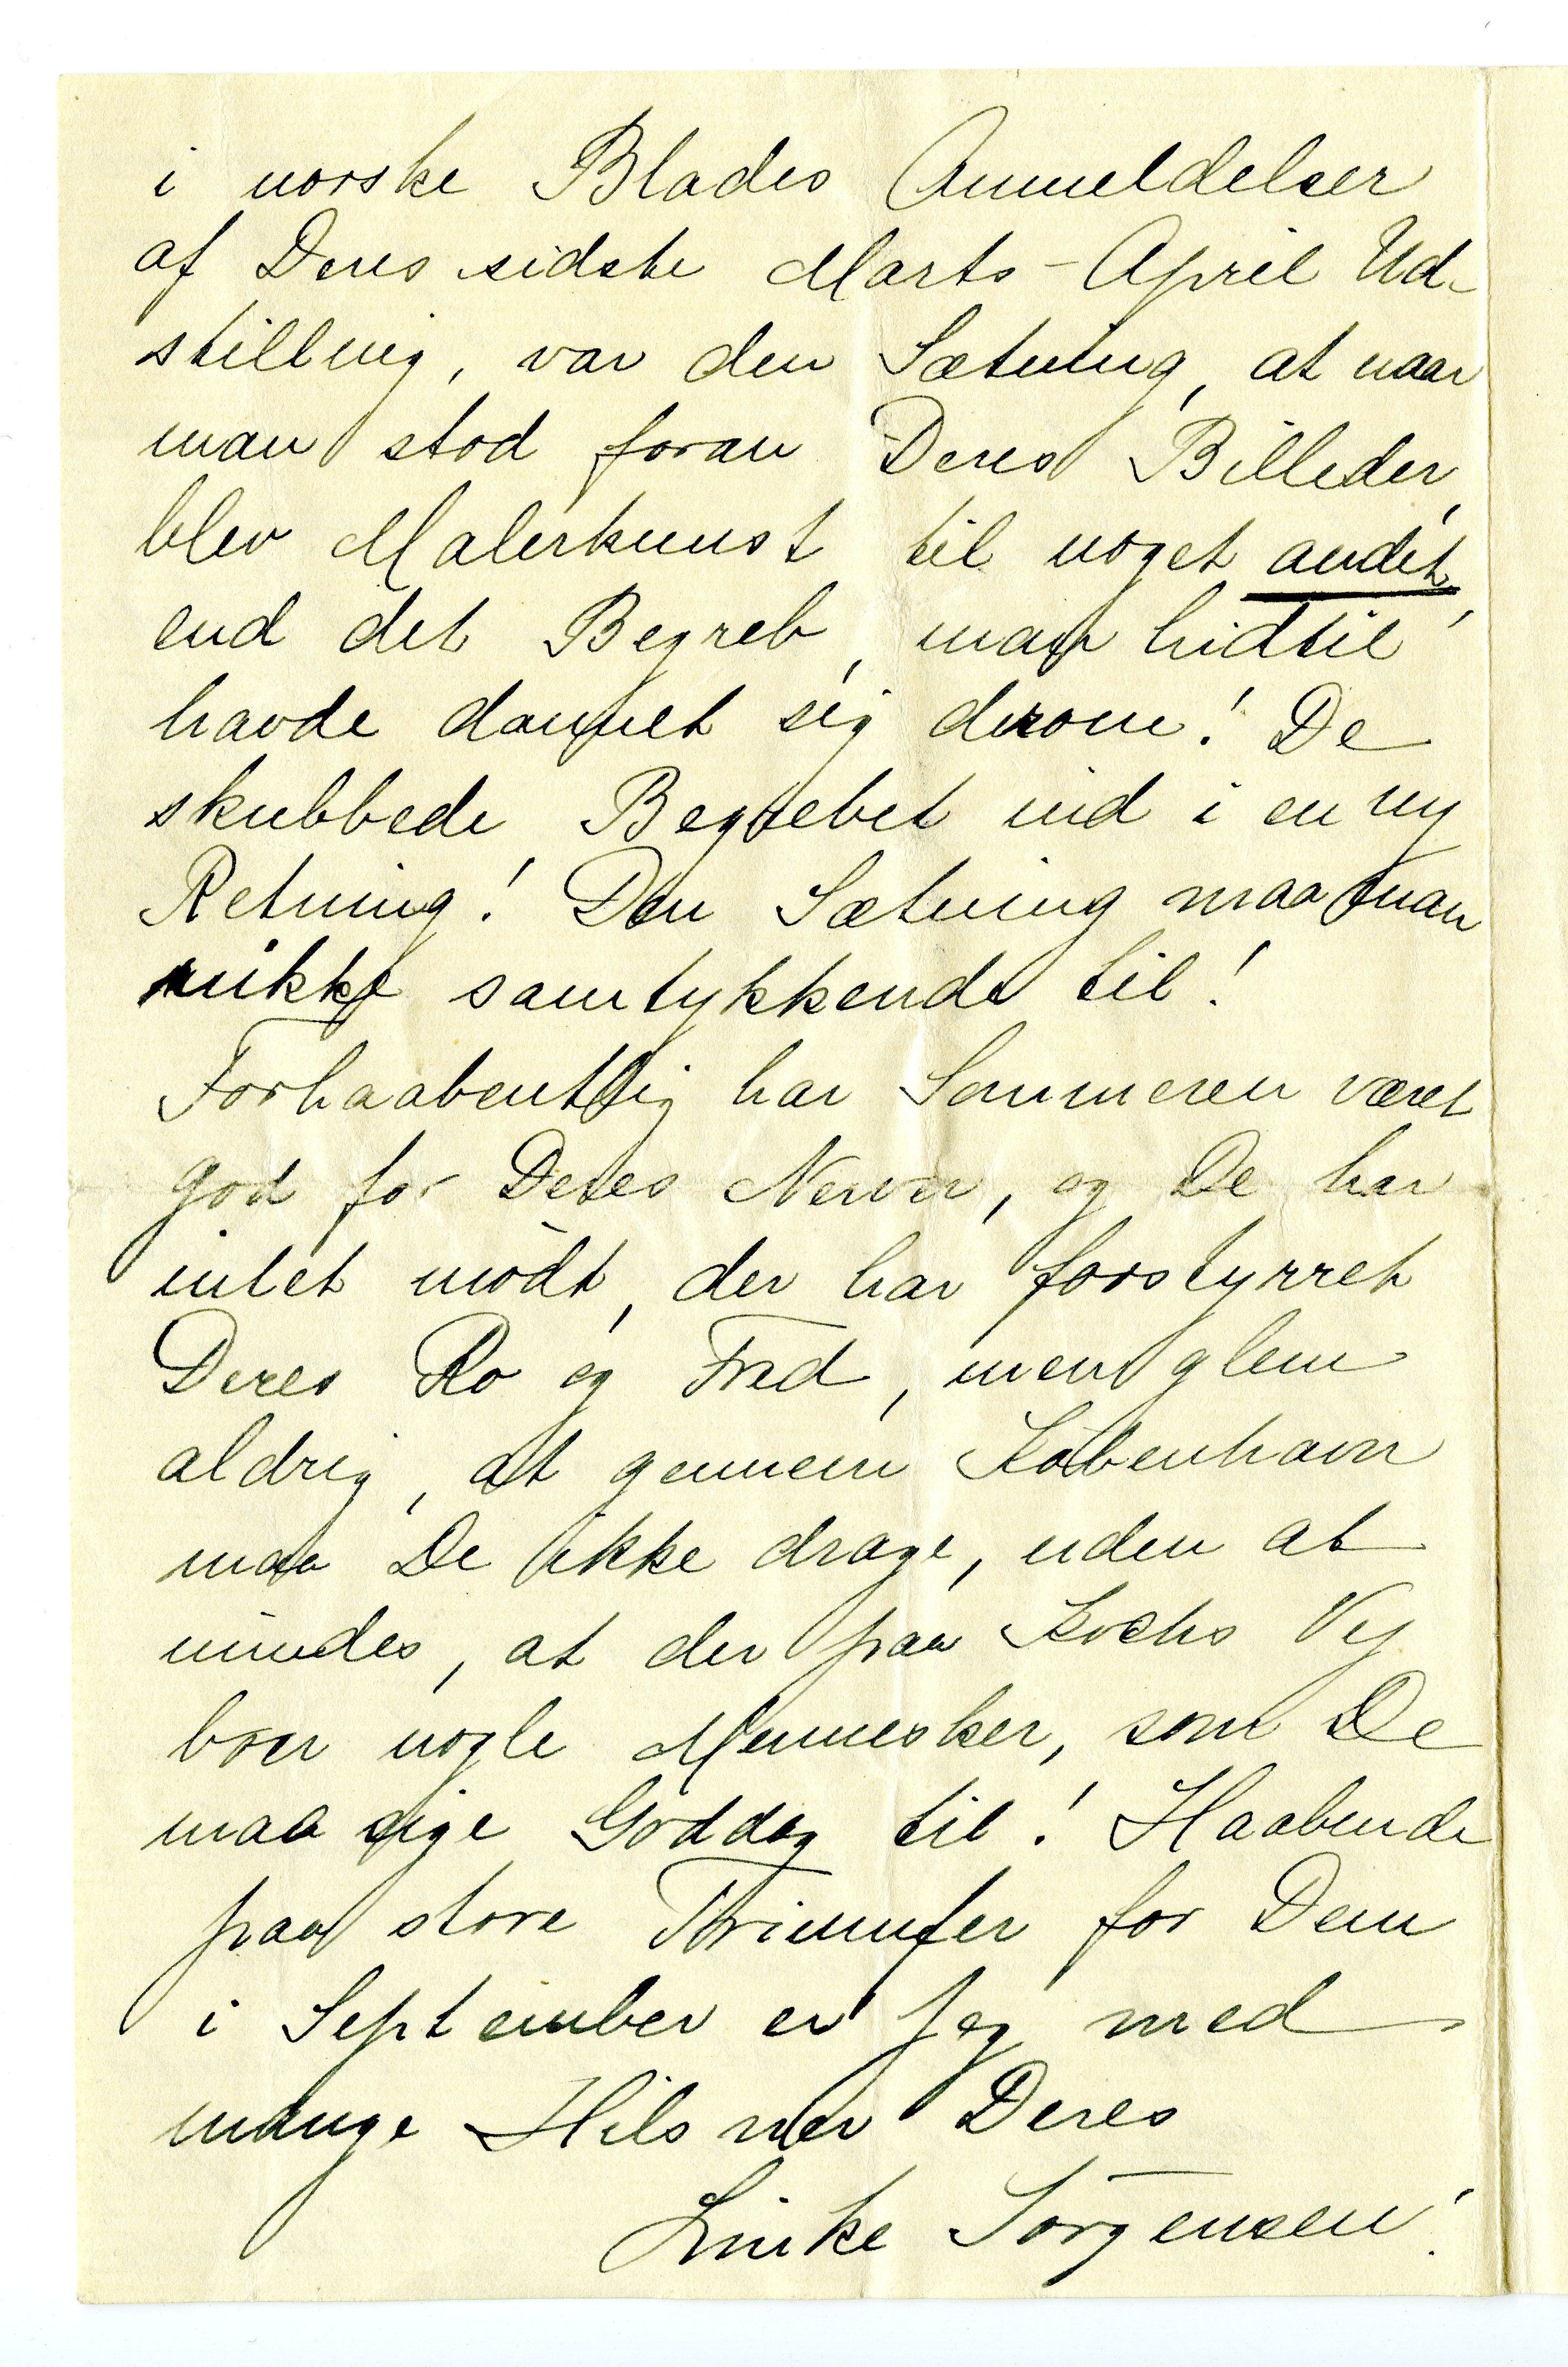 i norske Blades Anmeldelser
af Deres sidste Marts-April Ud-
stilling, var den Sætning, at naar
man stod foran Deres Billeder,
blev Malerkunst til noget andet,
end det Begreb, man hidtil
havde dannet sig derom! De
skubbede Begrebet ind i en ny
Retning! Den Sætning maa man
nikke samtykkende til!
Forhaabentlig har Sommeren været
god for Deres Nerver, og De har
intet mödt, der har forstyrret
Deres Ro og Fred, men glem
aldrig, at gennem København
maa De ikke drage, uden at
mindes, at der paa Kochs Vej
boer nogle Mennesker, som De
maa sige Goddag til! Haabende
paa store Triumfer for Dem
i September er Jeg med
mange Hilsner Deres
Linke Jörgensen!